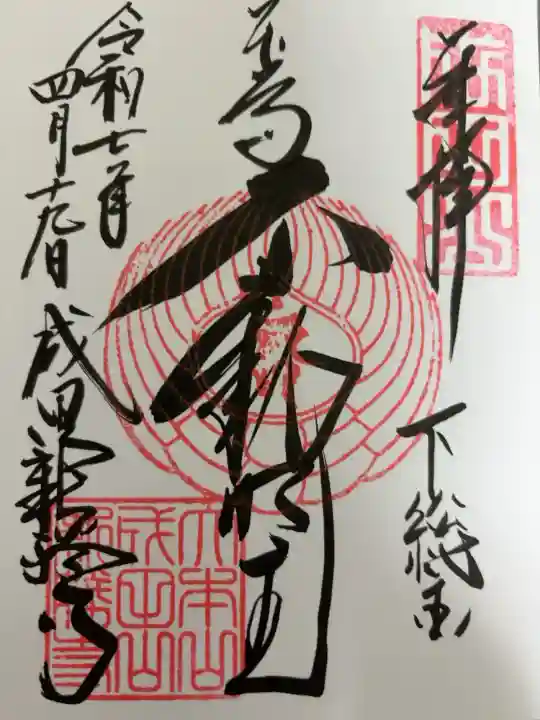 奉拝
下総国
本尊
不動明王
令和七年
四月十九日
成田山新勝寺
大本山
成田山
新勝寺